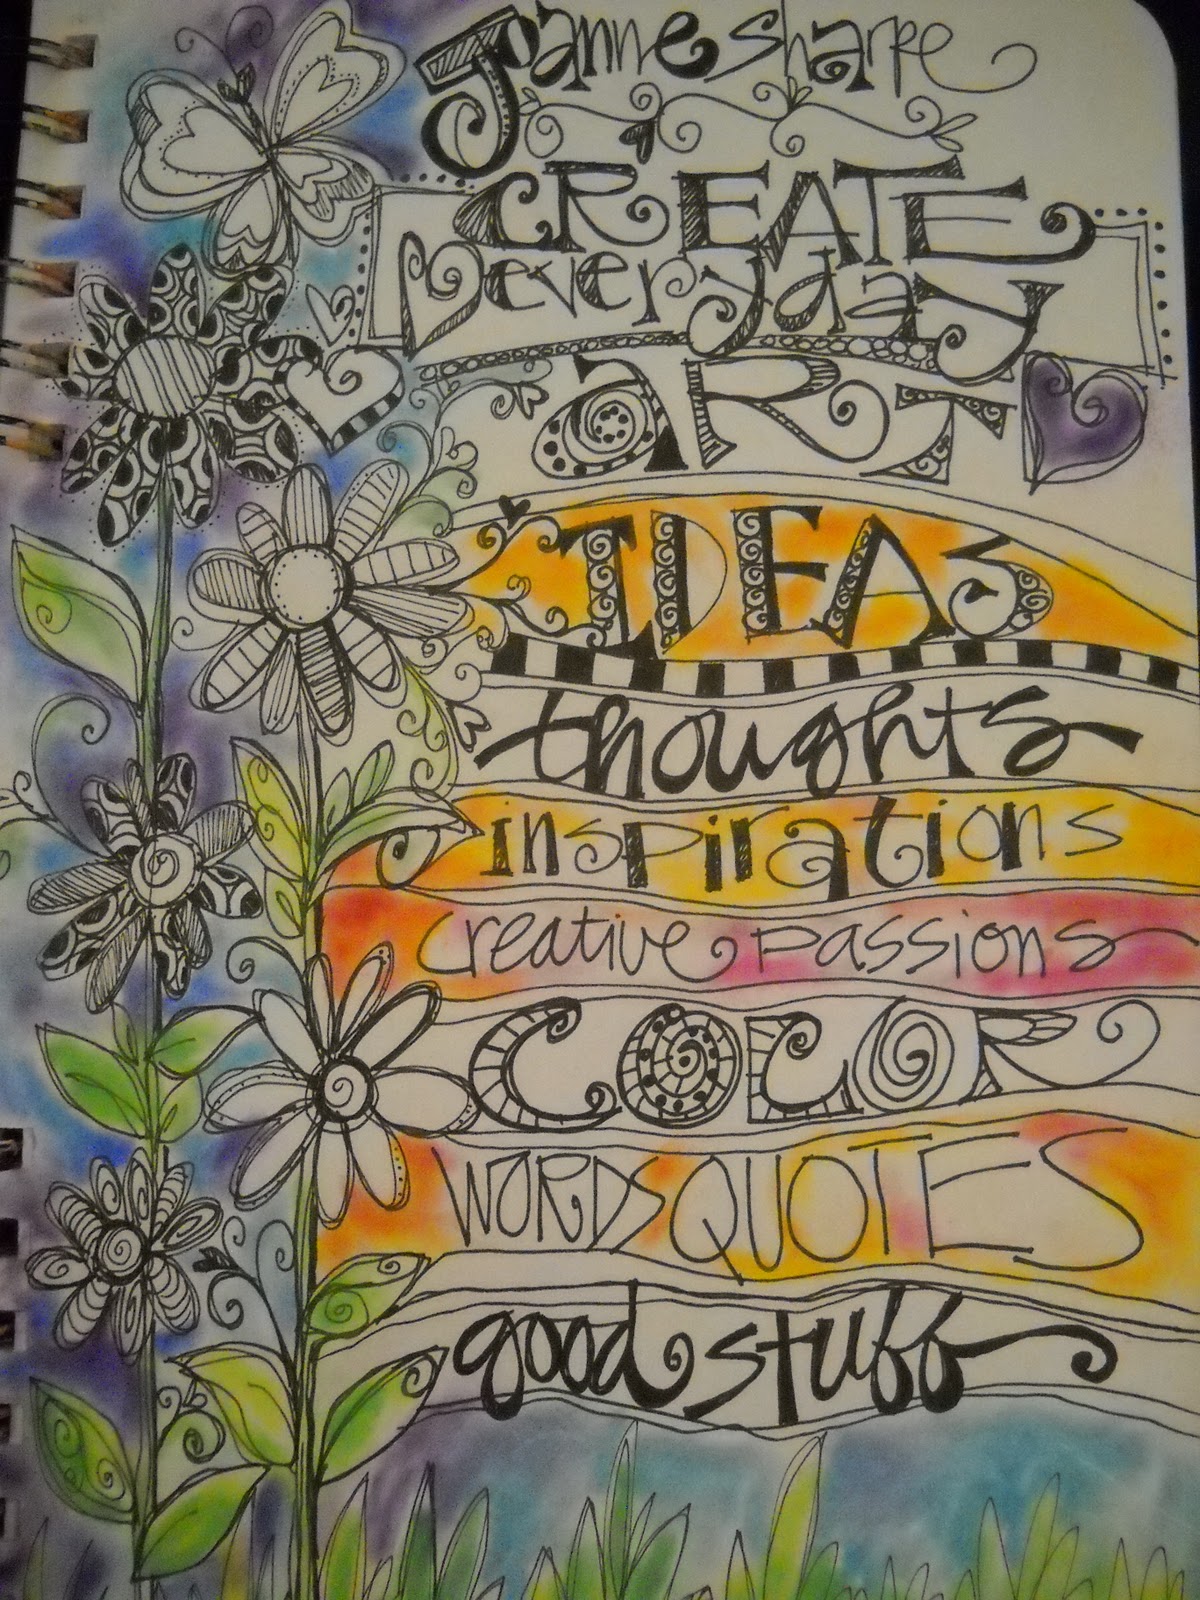 Joanne Sharpe
CREATE
everyday
ART
IDEAS
thoughts
inspirations
creative passions
COLOR
WORDS QUOTES
good stuff